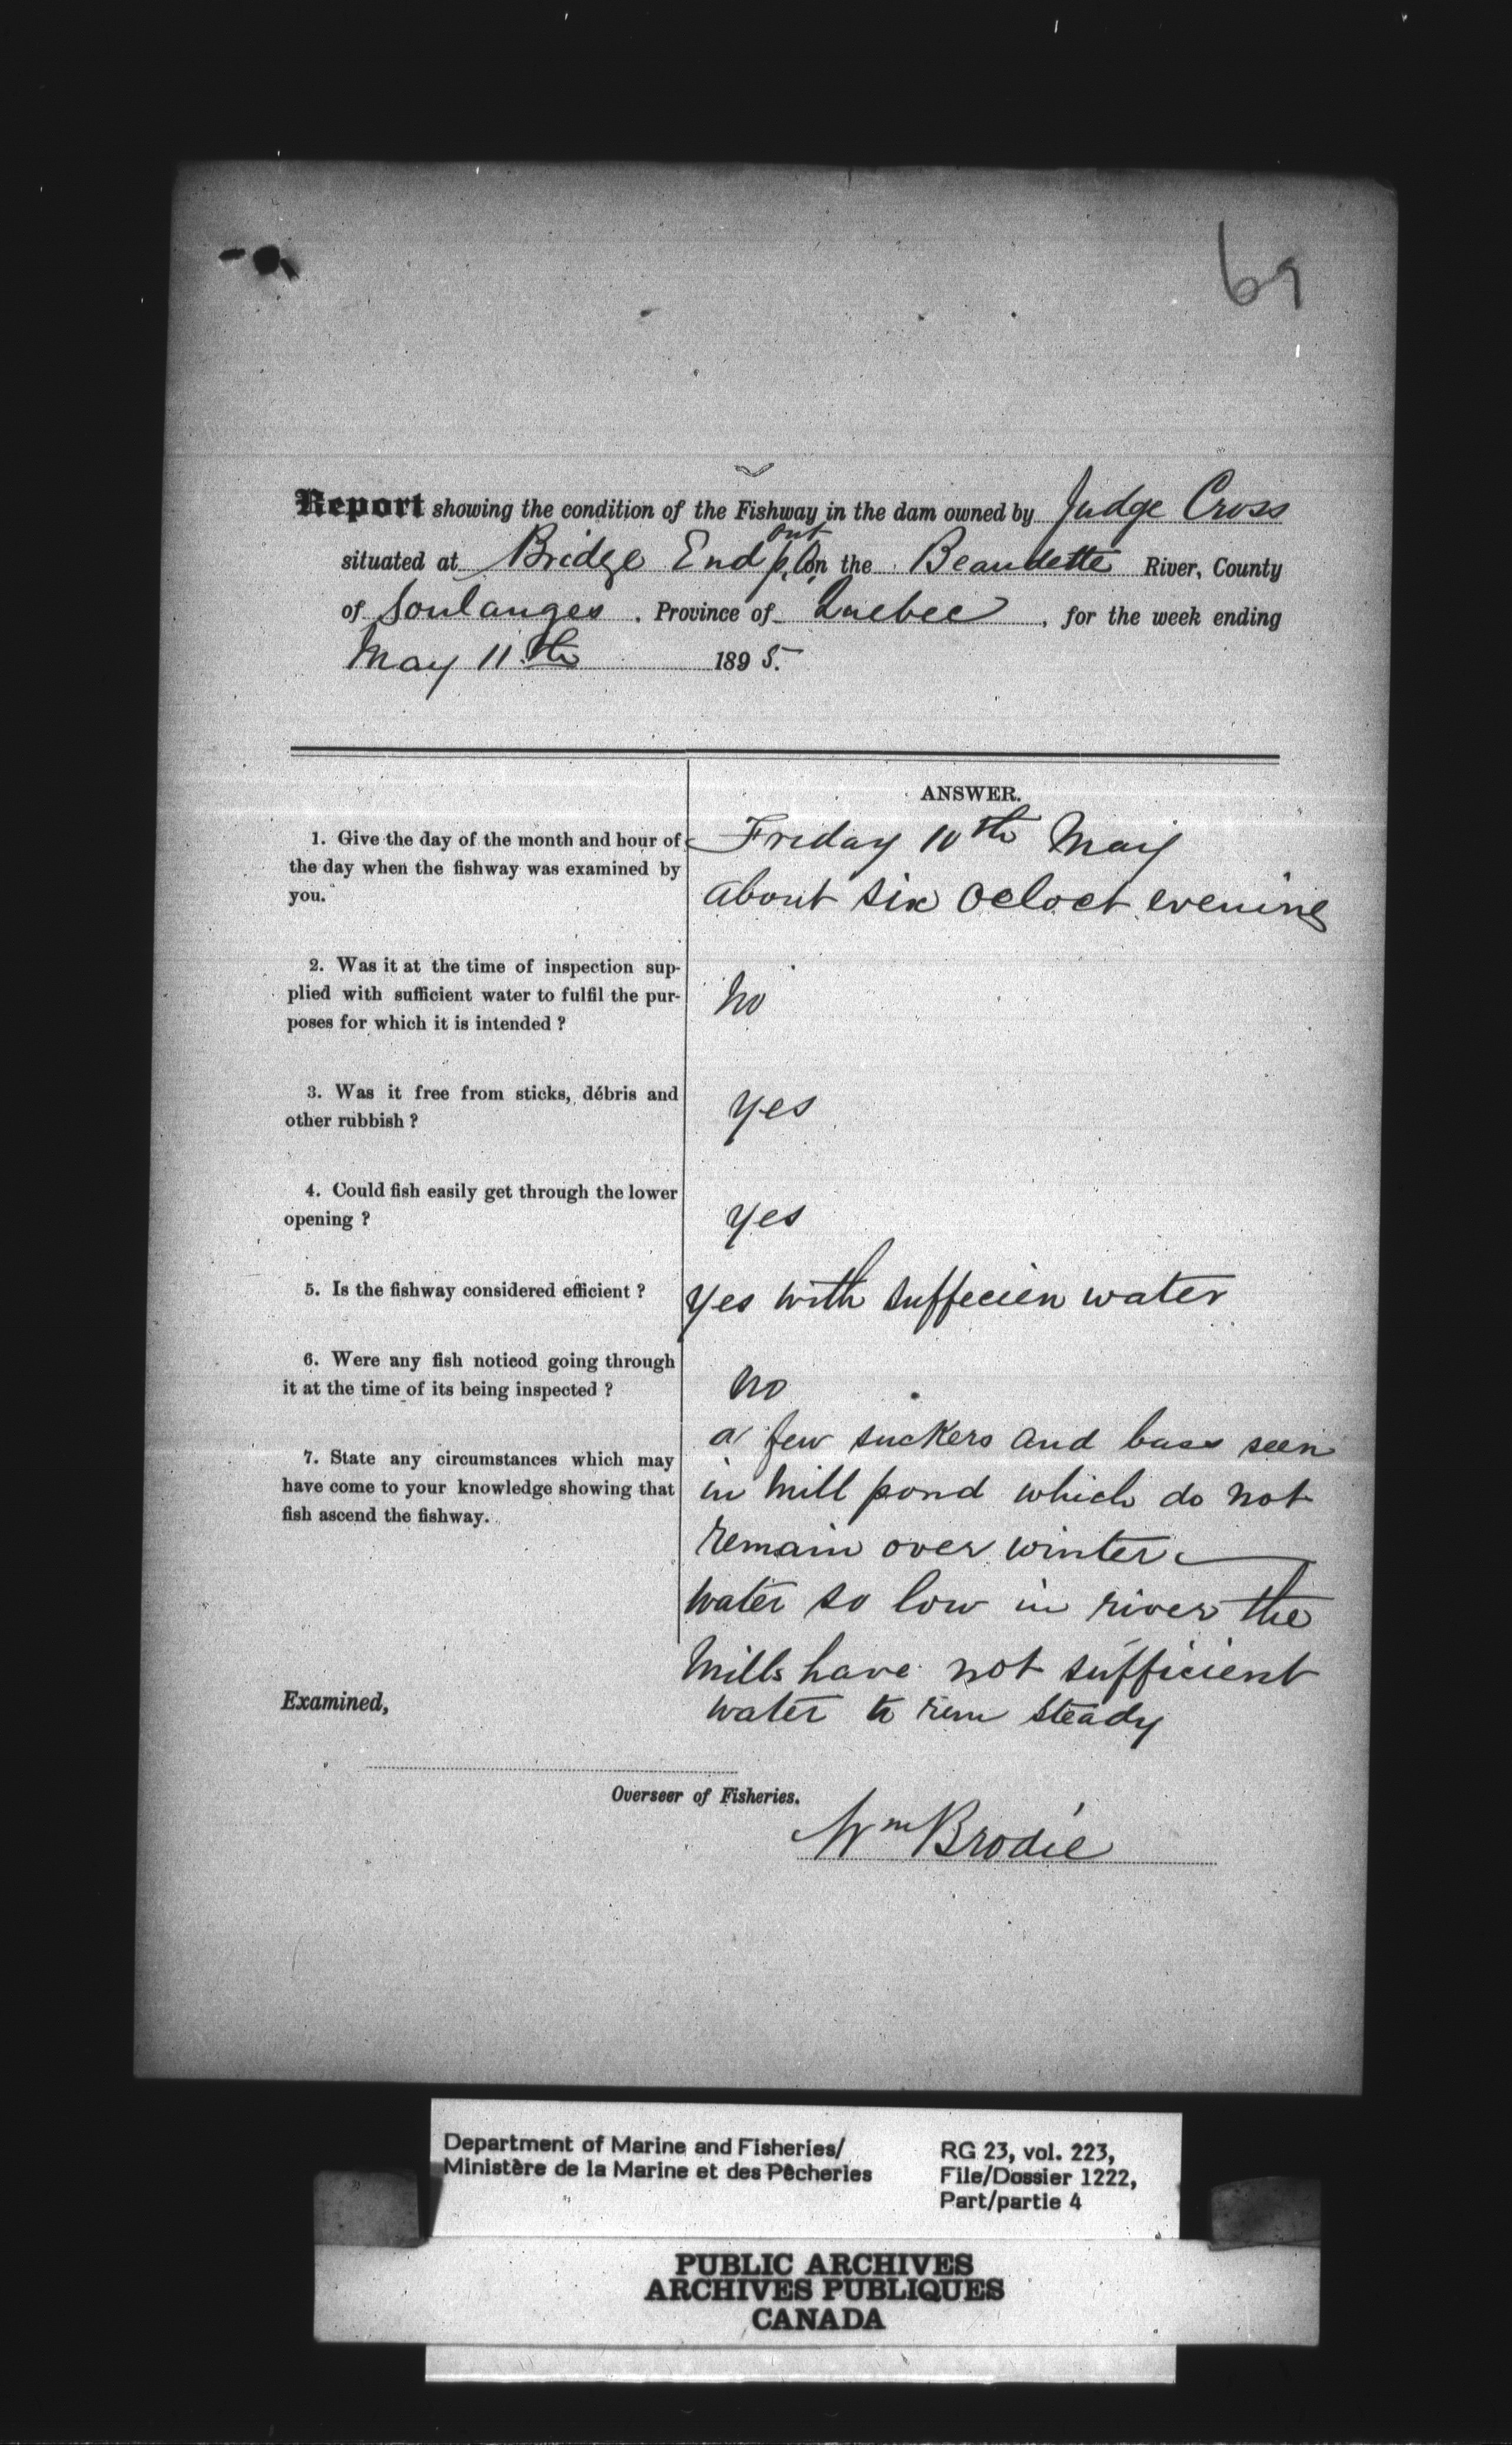 69
Report showing the condition of the Fishway in the dam owned by Judge Cross
situated at Bridge End P. Ont on the Beaudette River, County
of Soulanges. Province of Quebec, for the week ending
May 11th 1895.
ANSWER.
1. Give the day of the month and hour of
the day when the fishway was examined by
you.
Friday 10th May
about six Ocloct evening
2. Was it at the time of inspection sup-
plied with sufficient water to fulfil the pur-
poses for which it is intended ?
No
3. Was it free from sticks, débris and
other rubbish ?
yes
4. Could fish easily get through the lower
opening ?
yes
5. Is the fishway considered efficient ?
yes with suffecien water
6. Were any fish noticed going through
it at the time of its being inspected ?
no
7. State any circumstances which may
have come to your knowledge showing that
fish ascend the fishway.
a few suckers and bass seen
in Mill pond which do not
remain over winter
water so low in river the
Mills have not sufficient
water to run steady
Examined,
Overseer of Fisheries.
Wm Brodie
Department of Marine and Fisheries/
Ministère de la Marine et des Pêcheries
RG 23, vol. 223,
File/Dossier 1222,
Part/partie 4
PUBLIC ARCHIVES
ARCHIVES PUBLIQUES
CANADA